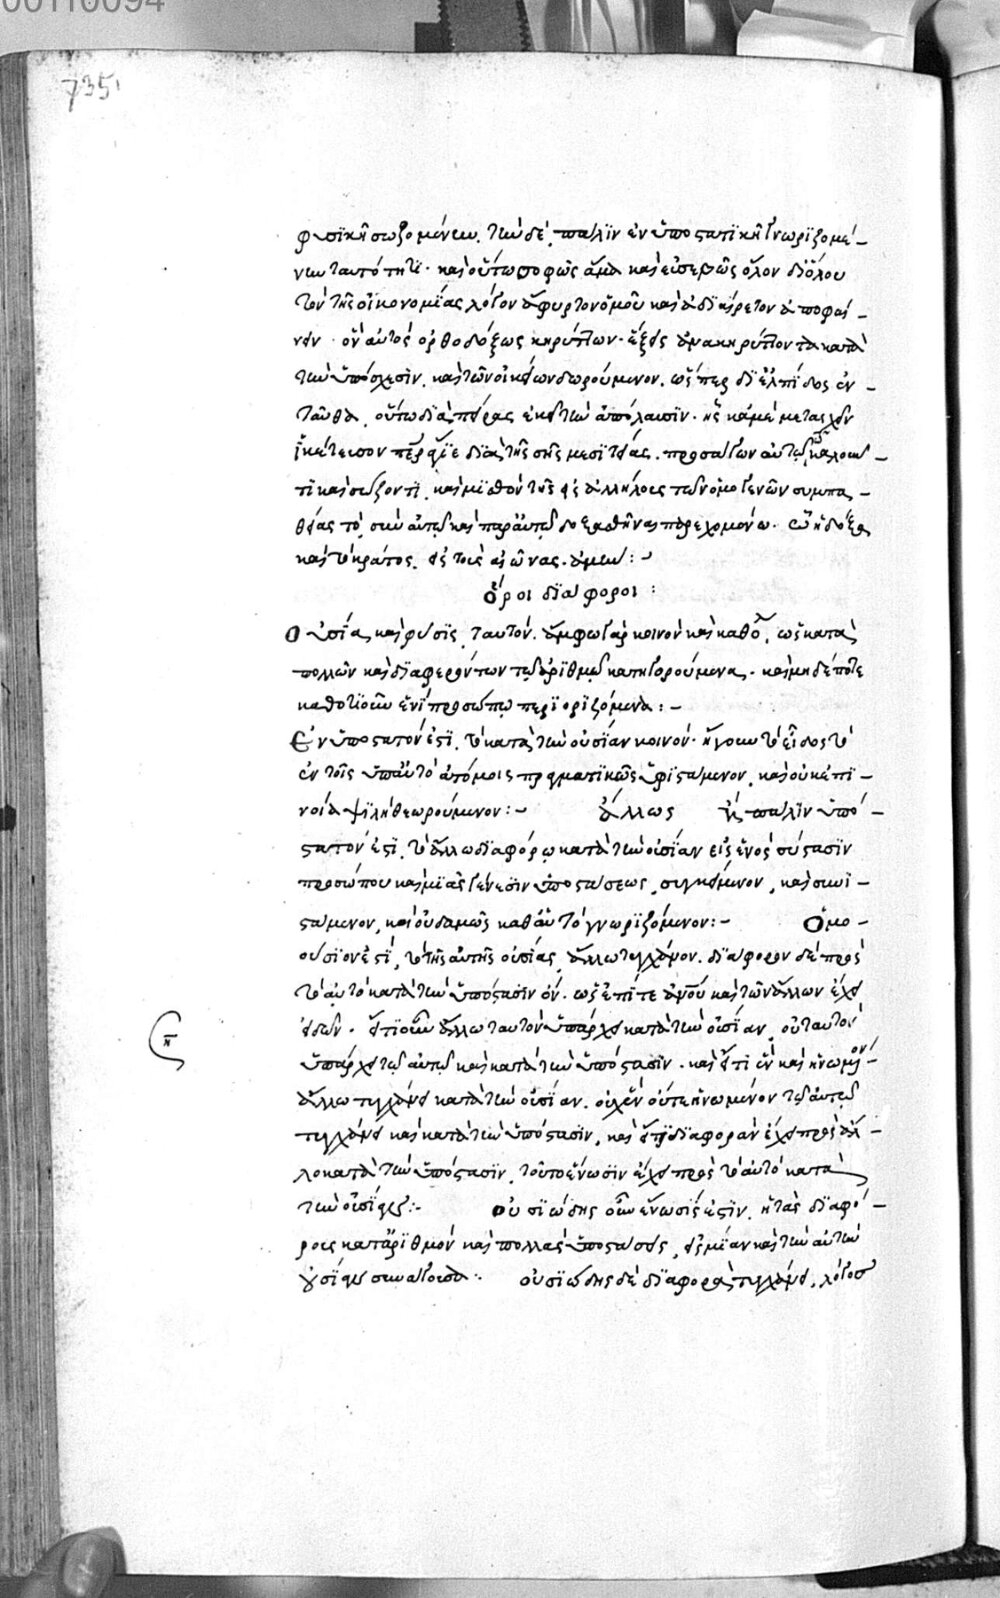 00110094
735
φυσικῇ σωζομένων. τῶν δὲ πάλιν ἐν ὑποστατικῇ γνωριζομέ-
νων ταυτότητι· καὶ οὕτω σοφῶς ἅμα καὶ εὐσεβῶς ὅλον δι' ὅλου
τὸν τῆς οἰκονομίας λόγον ἄφυρτον ὁμοῦ καὶ ἀδιαίρετον ἀποφαί-
νειν· ὃν αὐτὸς ὀρθοδόξως κηρύττων· ἕξεις ἀνακηρύττοντα κατὰ
τὴν ὑπόσχεσιν. καὶ τῶν οἰκείων δωρούμενον. ὥσπερ δι' ἐλπίδος ἐν-
ταῦθα, οὕτω διὰ πείρας ἐκεῖ τὴν ἀπόλαυσιν· ἧς κἀμὲ μετασχεῖν
ἱκέτευσον διὰ τῆς σῆς μεσιτείας. προσάγων αὐτῷ καλοῦν-
τι καὶ σώζοντι. καὶ μισθὸν τῆς εἰς ἀλλήλους τῶν ὁμογενῶν συμπα-
θείας τὸ σὺν αὐτῷ καὶ παρ' αὐτῷ δοξασθῆναι παρεχομένῳ. ᾧ ἡ δόξα
καὶ τὸ κράτος, εἰς τοὺς αἰῶνας. ἀμήν:-
ὅροι διάφοροι:
Οὐσία καὶ φύσις, ταυτόν. ἄμφω γὰρ κοινὸν καὶ καθόλου, ὡς κατὰ
πολλῶν καὶ διαφερόντων τῷ ἀριθμῷ κατηγορούμενα. καὶ μηδέποτε
καθοτιοῦν ἑνὶ προσώπῳ περιοριζόμενα:-
Ἐνυπόστατόν ἐστι, τὸ κατὰ τὴν οὐσίαν κοινόν· ἤγουν τὸ εἶδος τὸ
ἐν τοῖς ὑπ' αὐτὸ ἀτόμοις πραγματικῶς ὑφιστάμενον, καὶ οὐκ ἐπι-
νοίᾳ ψιλῇ θεωρούμενον:- ἄλλως ἢ πάλιν ἐνυπό-
στατόν ἐστι, τὸ ἄλλῳ διαφόρῳ κατὰ τὴν οὐσίαν εἰς ἑνὸς σύστασιν
προσώπου καὶ μιᾶς γένεσιν ὑποστάσεως, συγκείμενον, καὶ συνι-
στάμενον, καὶ οὐδαμῶς καθ' αὑτὸ γνωριζόμενον:- Ὁμο-
ούσιόν ἐστι, τὸ τῆς αὐτῆς οὐσίας ἄλλῳ τυγχάνον. διάφορον δὲ πρὸς
τὸ αὐτὸ κατὰ τὴν ὑπόστασιν ὄν. ὡς ἐπί τε ἀνου καὶ τῶν ἄλλων ἔχει
εἰδῶν. ὅτι οὖν ἄλλῳ ταυτὸν ὑπάρχει κατὰ τὴν οὐσίαν, οὐ ταυτὸν
ὑπάρχει τῷ αὐτῷ καὶ κατὰ τὴν ὑπόστασιν. καὶ ὅτι ἓν καὶ ἡνωμένον
ἄλλῳ τυγχάνει κατὰ τὴν οὐσίαν. οὐχ ἓν οὔτε ἡνωμένον τῷ αὐτῷ
τυγχάνει καὶ κατὰ τὴν ὑπόστασιν, καὶ ὅτι διαφορὰν ἔχει πρὸς ἄλ-
λο κατὰ τὴν ὑπόστασιν, τοῦτο ἕνωσιν ἔχει πρὸς τὸ αὐτὸ κατὰ
τὴν οὐσίαν:- οὐσιώδης οὖν ἕνωσίς ἐστιν, ἡ τὰς διαφό-
ρους κατ' ἀριθμὸν καὶ πολλὰς ὑποστάσεις, εἰς μίαν καὶ τὴν αὐτὴν
οὐσίαν συνάγουσα:- οὐσιώδης δὲ διαφορὰ τυγχάνει, λόγος